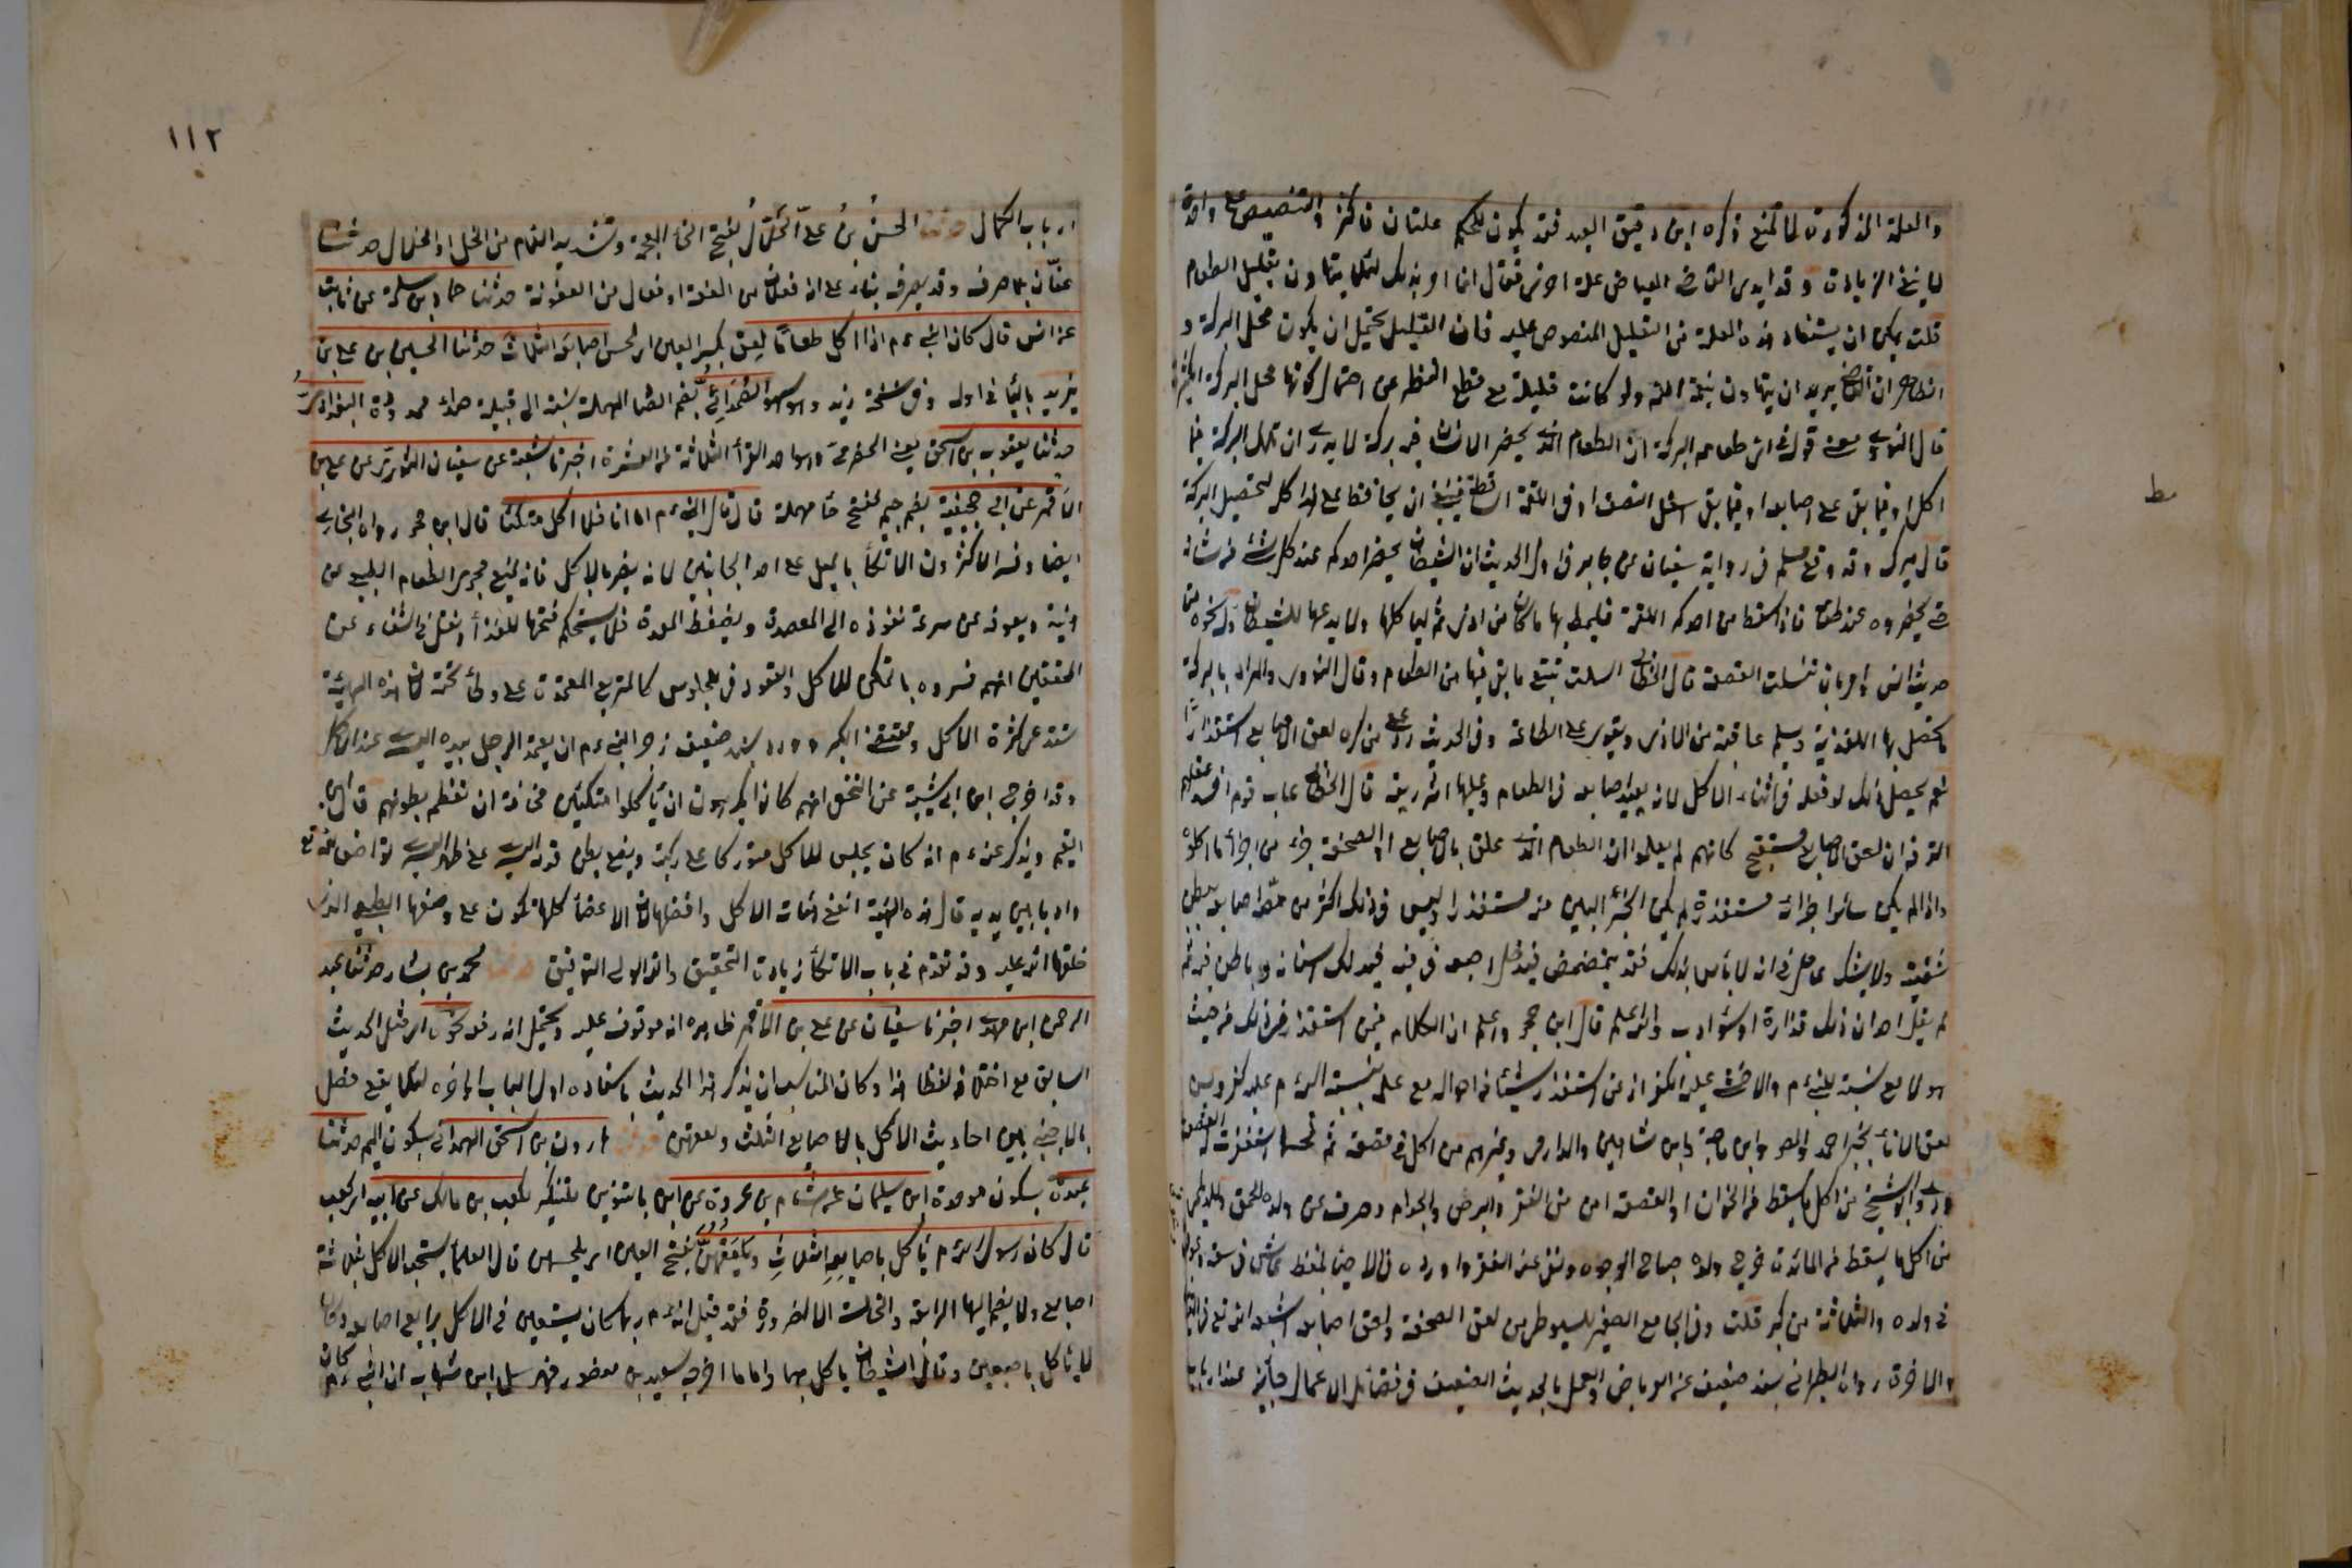 والعلة المذكورة لما تمنع ذكره ابن دقيق العيد فقد يكون للحكم علتان فاكثر والتنصيص على واحدة
لا ينفي الزيادة وقد ابدى القاضي العياض علة اخرى فقال انما امر بذلك لئلا يتهاون بقليل الطعام
قلت يمكن ان يستفاد هذه العلة من التعليل المنصوص عليه فان القليل يحتمل ان يكون محل البركة و
الظاهر ان القاضي يريد ان يتهاون بنعمة الله ولو كانت قليلة مع قطع النظر عن احتمال كونها محل البركة الكثيرة
قال النووي معنى قوله في اي طعامه البركة ان الطعام الذي يحضر الانسان فيه بركة لا يدري ان تلك البركة فيما
اكل او فيما بقي على اصابعه او فيما بقي اسفل القصعة او في اللقمة الساقطة فينبغي ان يحافظ على هذا كله لتحصيل البركة
قال ميرك وقد وقع لمسلم في رواية سفيان عن جابر في اول الحديث ان الشيطان يحضر احدكم عند كل شئ من شانه
حتى يحضره عند طعامه فاذا سقط من احدكم اللقمة فليمط بها ما كان من اذى ثم لياكلها ولا يدعها للشيطان وله نحوه من
حديث انس وامر بان تسلت القصعة قال الخطابي السلت تتبع ما بقي فيها من الطعام وقال النووي والمراد بالبركة
ما يحصل بها التغذية ويسلم عاقبته من الاذى ويقوى على الطاعة وفي الحديث رد على من كره لعق الاصابع استقذارا
نعم يحصل ذلك لو فعله في اثناء الاكل لانه يعيد اصابعه في الطعام وعليها اثر ريقه قال الخطابي عاب قوم افسد عقلهم
الترفه ان لعق الاصابع مستقبح كانهم لم يعلموا ان الطعام الذي علق بالاصابع او الصحفة جزء من اجزاء ما اكلوه
واذا لم يكن سائر اجزائه مستقذرة لم يكن الجزء اليسير منه مستقذرا وليس في ذلك اكثر من مصه اصابعه بباطن
شفتيه ولا يشك عاقل في انه لا بأس بذلك فقد يتمضمض فيدخل اصبعه في فيه فيدلك اسنانه وباطن فيه ثم
لم يقل احد ان ذلك قذارة او سوء ادب والله اعلم قال ابن حجر واعلم ان الكلام فيمن استقذر ذلك من حيث
هو لا مع نسبته للنبي ء م والا خشي عليه الكفر اذ من استقذر شيئا من احواله مع علمه بنسبته اليه ء م عليه كفر ويسن
لعق الاناء بخبر احمد والمص وابن ماجة وابن شاهين والدارمي وغيرهم من اكل في قصعة ثم لحسها استغفرت له القصعة
وروى ابو الشيخ من اكل ما يسقط من الخوان او القصعة امن من الفقر والبرص والجذام وصرف عن ولده الحمق وللديلمي
من اكل ما يسقط من المائدة خرج ولده صباح الوجوه ونفي عنه الفقر واورده في الاحياء بلفظ عاش في سعة وعوفي
في ولده والثلاثة مناكير قلت وفي الجامع الصغير للسيوطي من لعق الصحفة ولعق اصابعه اشبعه الله تع في الدنيا
والاخرة رواه الطبراني بسند ضعيف عن العرباض والعمل بالحديث الضعيف في فضائل الاعمال جائز عند ارباب
مط
١١٢
ارباب الكمال حدثنا الحسن بن علي الخلال بفتح الخاء المعجمة وتشديد اللام من الخل او الخلال حدثنا
عفان بلا صرف وقد يصرف بناء على انه فعلان من العفة او فعال من العفونة حدثنا حماد بن سلمة عن ثابت
عن انس قال كان النبي ء م اذا اكل طعاما لعق بكسر العين اي لحس اصابعه الثلاث حدثنا الحسين بن علي بن
يزيد بالياء في اوله وفي نسخة زيد وهو سهو الصدائي بضم الصاد المهملة نسبة الى قبيلة صداء ممدودة البغدادي
حدثنا يعقوب بن اسحق يعني الحضرمي وهو احد القراء الثلاثة من العشرة اخبرنا شعبة عن سفيان الثوري عن علي بن
الاقمر عن ابي جحيفة بضم جيم بفتح حا مهملة قال قال النبي ء م اما انا فلا اكل متكئا قال ابن حجر رواه البخاري
ايضا وفسر الاكثرون الاتكاء بالميل على احد الجانبين لانه يضر بالاكل فانه يمنع مجرى الطعام الطبيعي عن
هيئته ويعوقه عن سرعة نفوذه الى المعدة ويضغط المعدة فلا يستحكم فتحها للغذاء ونقل في الشفاء عن
المحققين انهم فسروه بالتمكن للاكل والقعود في الجلوس كالمتربع المعتمد على وطاء تحته لان هذه الهيئة
تستدعي كثرة الاكل وتقتضي الكبر وورد بسند ضعيف زجر النبي ء م ان يعتمد الرجل بيده اليسرى عند الاكل
وقد اخرج ابن ابي شيبة عن النخعي انهم كانوا يكرهون ان يأكلوا متكئين مخافة ان تعظم بطونهم قال ابن
القيم ويذكر عنه ء م انه كان يجلس للاكل متوركا على ركبتيه ويضع بطن قدمه اليسرى على ظهر اليمنى تواضعا لله تع
وادبا بين يديه قال هذه الهيئة انفع هيئات الاكل وافضلها لان الاعضاء كلها تكون على وضعها الطبيعي الذي
خلقها الله عليه وقد تقدم في باب الاتكاء زيادة التحقيق والله ولي التوفيق حدثنا محمد بن بشار حدثنا عبد
الرحمن ابن مهدي اخبرنا سفيان عن علي بن الاقمر ظاهره انه موقوف عليه ويحتمل انه رفعه نحوه اي مثل الحديث
السابق مع اختلاف لفظا هذا وكان المناسب ان يذكر هذا الحديث باسناده اول الباب او اخره لئلا يقع فصل
بالاجنبي بين احاديث الاكل بالاصابع الثلث ولعقهن حدثنا هارون بن اسحق الهمداني بسكون الميم حدثنا
عبدة بسكون موحدة ابن سليمان عن هشام بن عروة عن ابن بالتنوين للتنكير لكعب بن مالك عن ابيه اي كعب
قال كان رسول الله ء م يأكل باصابعه الثلاث ويلعقهن بفتح العين اي يلحسهن قال العلماء يستحب الاكل بثلاثة
اصابع ولا يضم اليها الرابعة والخامسة الا لضرورة فقد قيل انه ء م ربما كان يستعين في الاكل برابع اصابعه وكان
لا يأكل باصبعين وقال الشيطان ياكل بهما واما ما اخرجه سعيد بن منصور من مرسل ابن شهاب ان النبي ء م كان